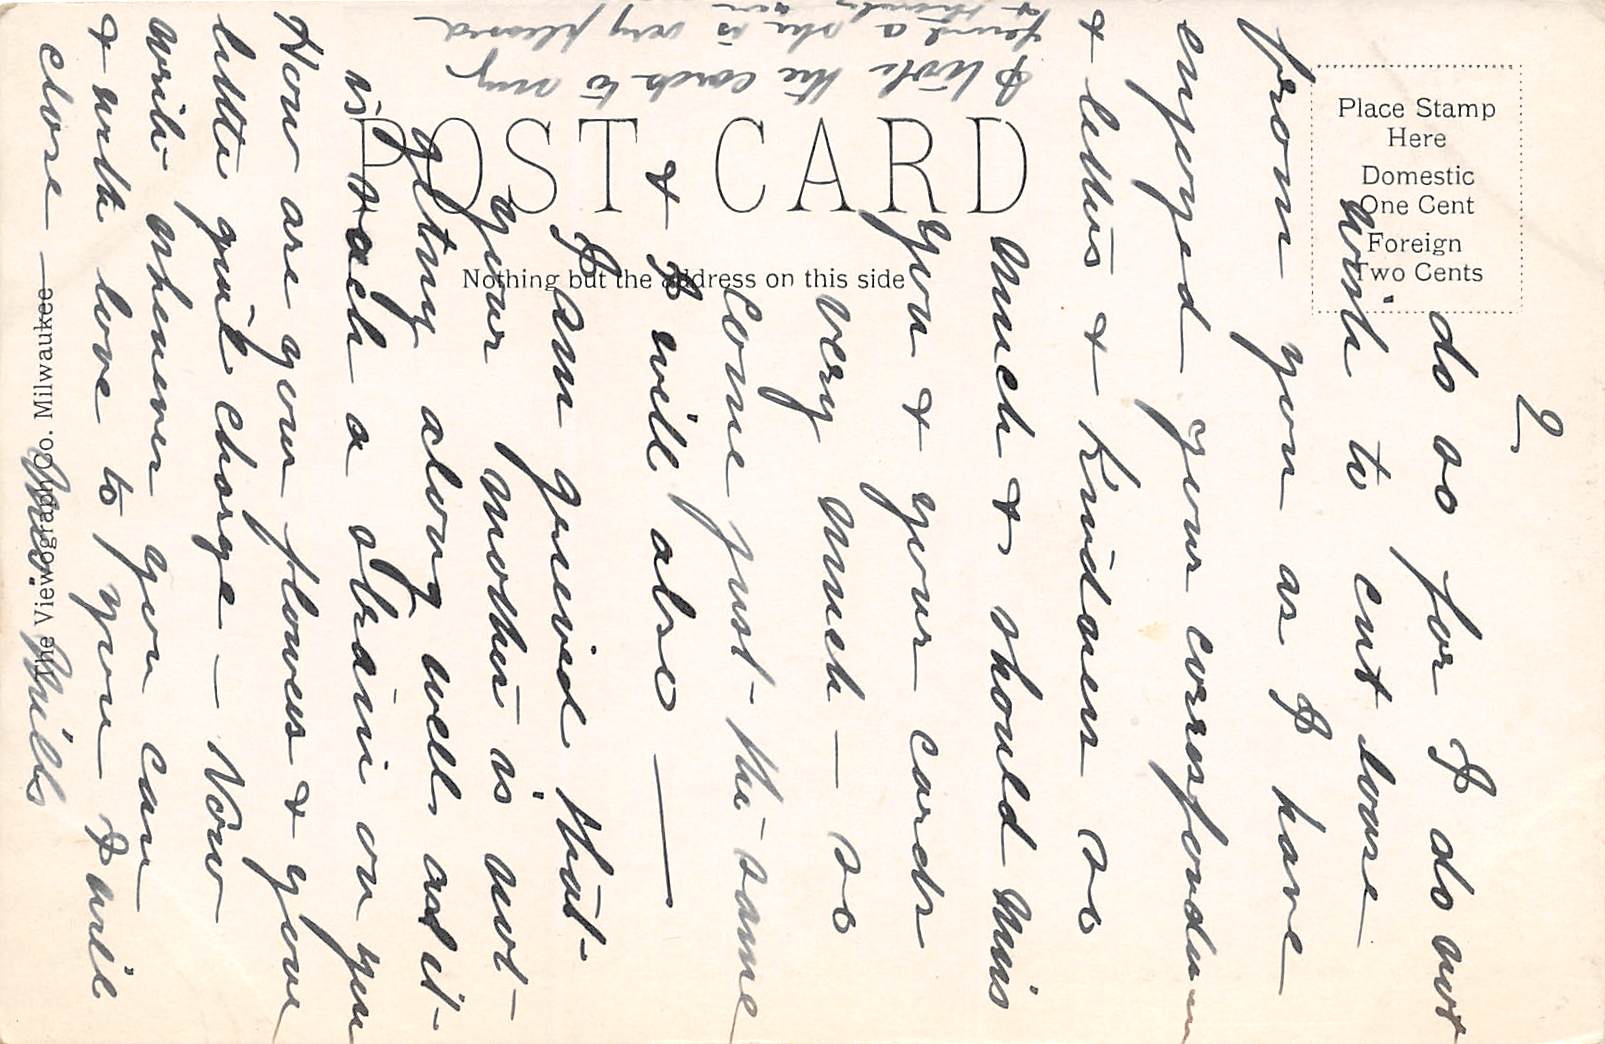 2.
do so for I do not
wish to cut loose
from you as I have
enjoyed your correspondence
& letters & kindness so
much & should miss
you & your cards
very much — so
come just the same
& I will also —
I am grieved that
your mother is not
getting along well, as it
is such a strain on you
How are your flowers & your
little girl charge — Now
write whenever you can
& with love to you I will
close —
Mills
I wrote the cards to my
friend & she is very pleased
POST CARD
Nothing but the address on this side
Place Stamp
Here
Domestic
One Cent
Foreign
Two Cents
The Viewography Co. Milwaukee